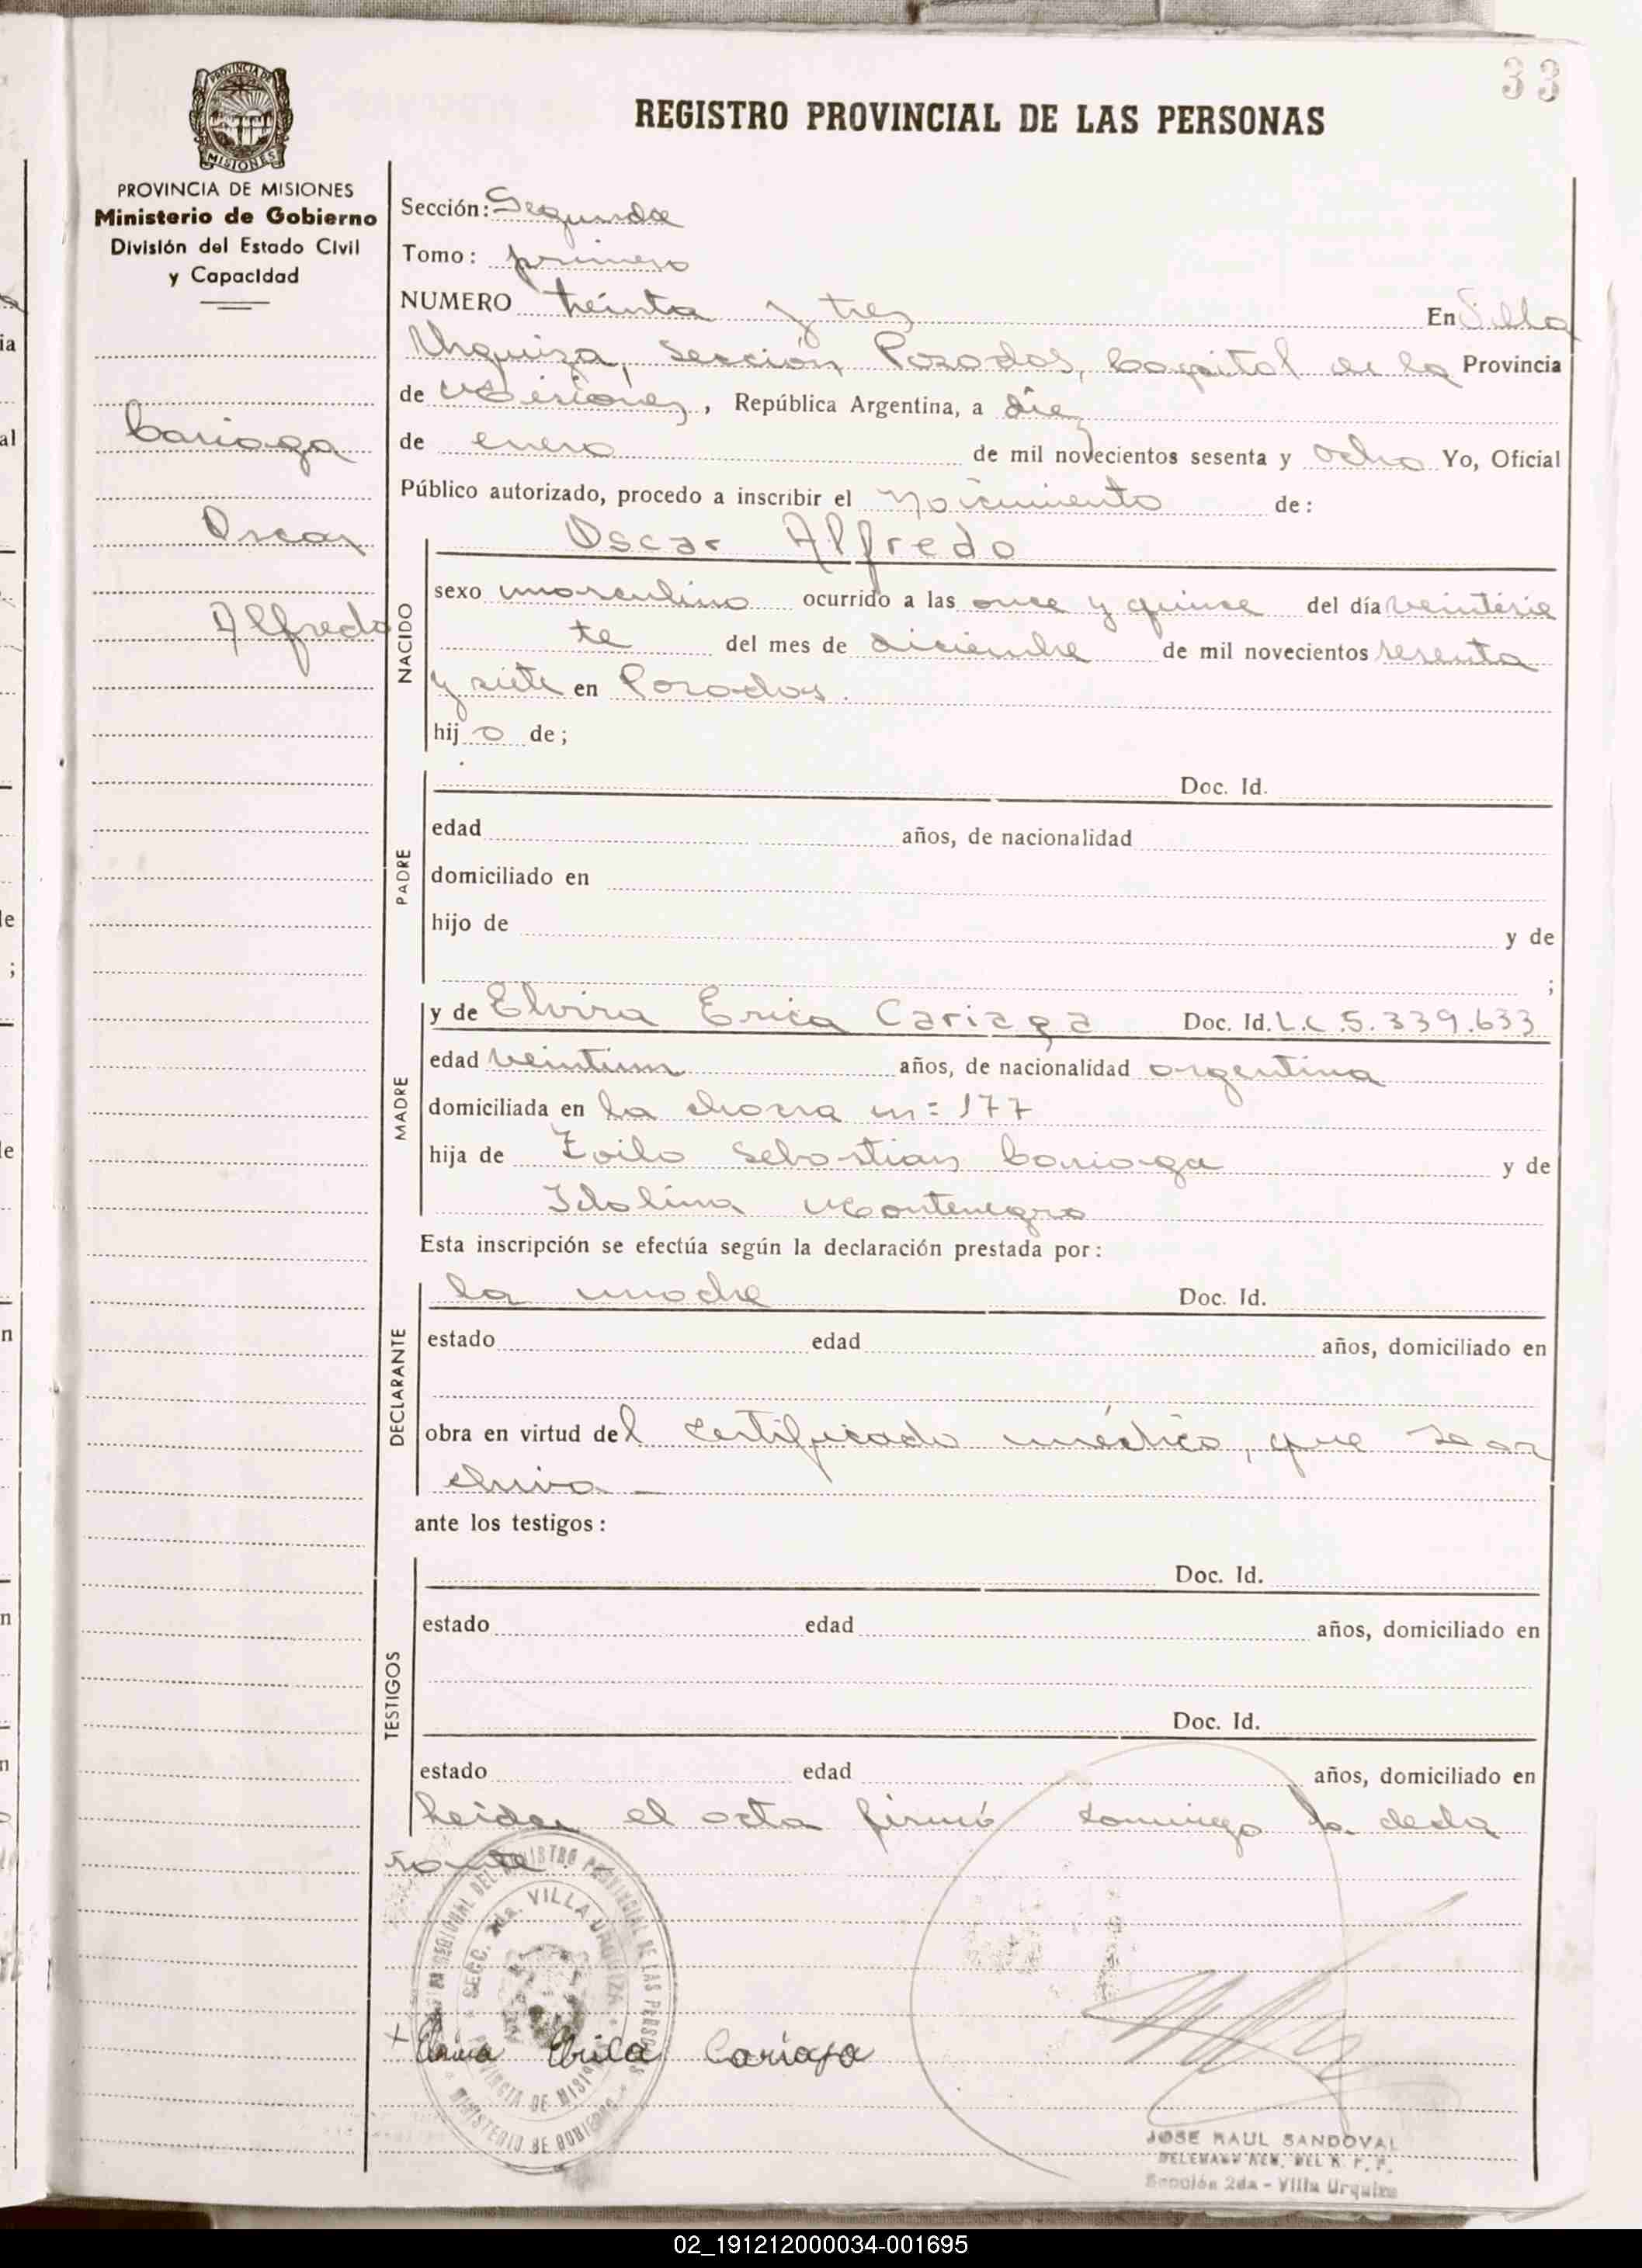 33
PROVINCIA DE
MISIONES
REGISTRO PROVINCIAL DE LAS PERSONAS
PROVINCIA DE MISIONES
Ministerio de Gobierno
División del Estado Civil
y Capacidad
Cariaga
Oscar
Alfredo
Sección: Segunda
Tomo: primero
NUMERO treinta y tres En Villa
Urquiza, sección Posadas, Capital de la Provincia
de Misiones, República Argentina, a diez
de enero de mil novecientos sesenta y ocho Yo, Oficial
Público autorizado, procedo a inscribir el nacimiento de:
NACIDO
Oscar Alfredo
sexo masculino ocurrido a las once y quince del día veintisie
te del mes de diciembre de mil novecientos sesenta
y siete en Posadas.
hijo de;
PADRE
Doc. Id.
edad años, de nacionalidad
domiciliado en
hijo de y de
;
MADRE
y de Elvira Erica Cariaga Doc. Id. L.C 5.339.633
edad veintiun años, de nacionalidad argentina
domiciliada en la chacra n= 177
hija de Zoilo Sebastian Cariaga y de
Idolina Montenegro
Esta inscripción se efectúa según la declaración prestada por:
DECLARANTE
la madre Doc. Id.
estado edad años, domiciliado en
obra en virtud del certificado médico, que se ar
chiva —
ante los testigos:
TESTIGOS
Doc. Id.
estado edad años, domiciliado en
Doc. Id.
estado edad años, domiciliado en
Leida el acta firmó conmigo la decla
rante.
REGIONAL DEL REGISTRO PROVINCIAL DE LAS PERSONAS
SECC. 2da. VILLA URQUIZA
PROVINCIA DE MISIONES
MINISTERIO DE GOBIERNO
x Elvira Erica Cariaga
JOSE RAUL SANDOVAL
DEL R. P. P.
Sección 2da - Villa Urquiza
02_191212000034-001695